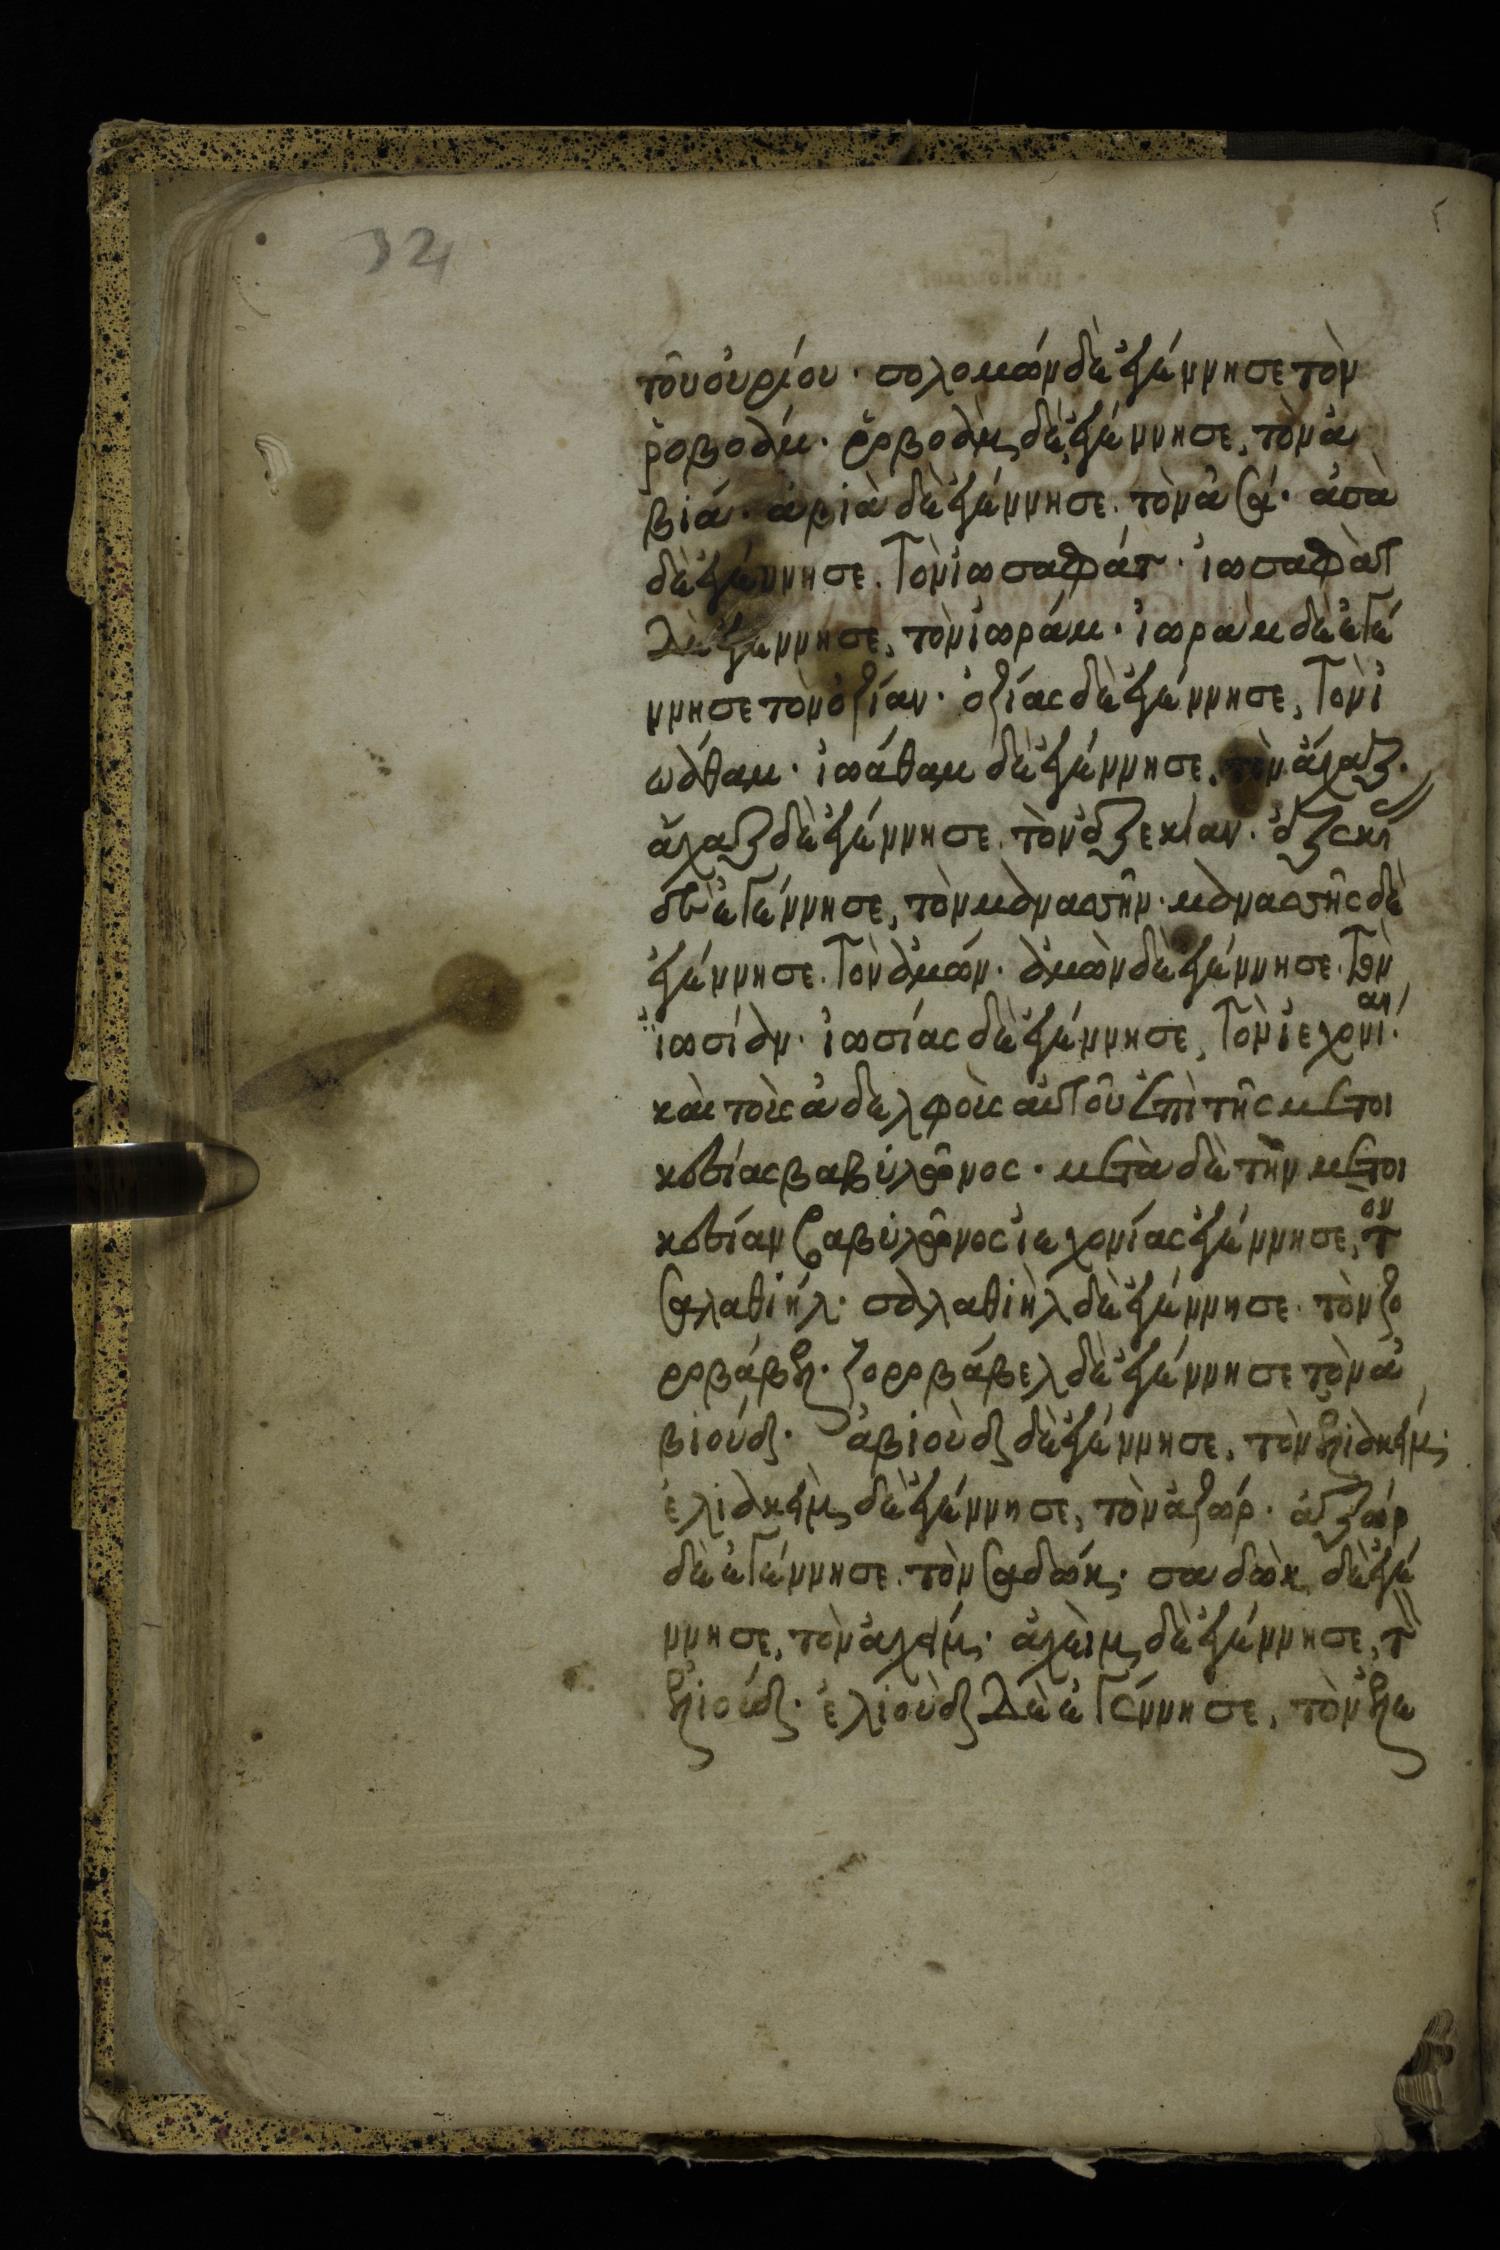 32
τοῦ οὐρίου· σολομών δὲ ἐγέννησε τὸν
ῥοβοάμ· ῥοβοὰμ δὲ ἐγέννησε, τὸν ἀ
βιά· ἀβιὰ δὲ ἐγέννησε. τὸν ἀσά· ἀσὰ
δὲ ἐγέννησε. τὸν ἰωσαφάτ· ἰωσαφὰτ
δὲ ἐγέννησε, τὸν ἰωράμ· ἰωρὰμ δὲ ἐγέ
ννησε τὸν ὀζίαν· ὀζίας δὲ ἐγέννησε, τὸν ἰ
ωάθαμ· ἰωάθαμ δὲ ἐγέννησε, τὸν ἄχαζ.
ἄχαζ δὲ ἐγέννησε. τὸν ἐζεκίαν· ἐζεκί
δὲ ἐγέννησε, τὸν μανασσῆν· μανασσῆς δὲ
ἐγέννησε. τὸν ἀμών· ἀμὼν δὲ ἐγέννησε. τὸν
ἰωσίαν· ἰωσίας δὲ ἐγέννησε, τὸν ἰεχονίαν·
καὶ τοὺς ἀδελφοὺς αὐτοῦ ἐπὶ τῆς μετοι
κεσίας βαβυλῶνος· μετὰ δὲ τὴν μετοι
κεσίαν βαβυλῶνος ἰεχονίας ἐγέννησε, τὸν
σαλαθιήλ· σαλαθιὴλ δὲ ἐγέννησε. τὸν ζο
ροβάβελ· ζοροβάβελ δὲ ἐγέννησε τὸν ἀ
βιούδ· ἀβιοὺδ δὲ ἐγέννησε, τὸν ἐλιακείμ·
ἐλιακεὶμ δὲ ἐγέννησε, τὸν ἀζώρ· ἀζώρ
δὲ ἐγέννησε. τὸν σαδώκ· σαδὼκ δὲ ἐγέ
ννησε, τὸν ἀχείμ· ἀχεὶμ δὲ ἐγέννησε, τ
ἐλιούδ· ἐλιοὺδ δὲ ἐγέννησε, τὸν ἐλε